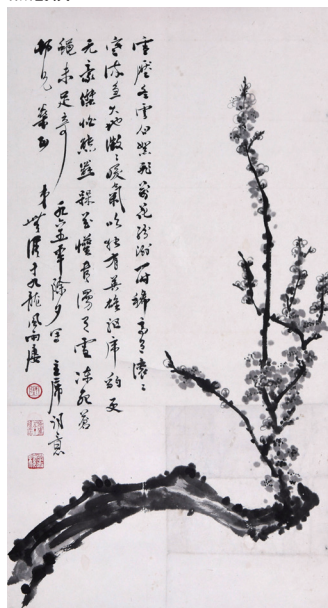 雪壓冬雲白絮飛萬花紛謝一時稀高天滾々
寒流急大地微々暖氣吹獨有英雄驅虎豹更
无豪傑怕熊羆梅花懽喜漫天雪凍死蒼
蠅未足奇 一九六五年除夕寫 主席詩意
兄 正 弟 于九龍風雨廬